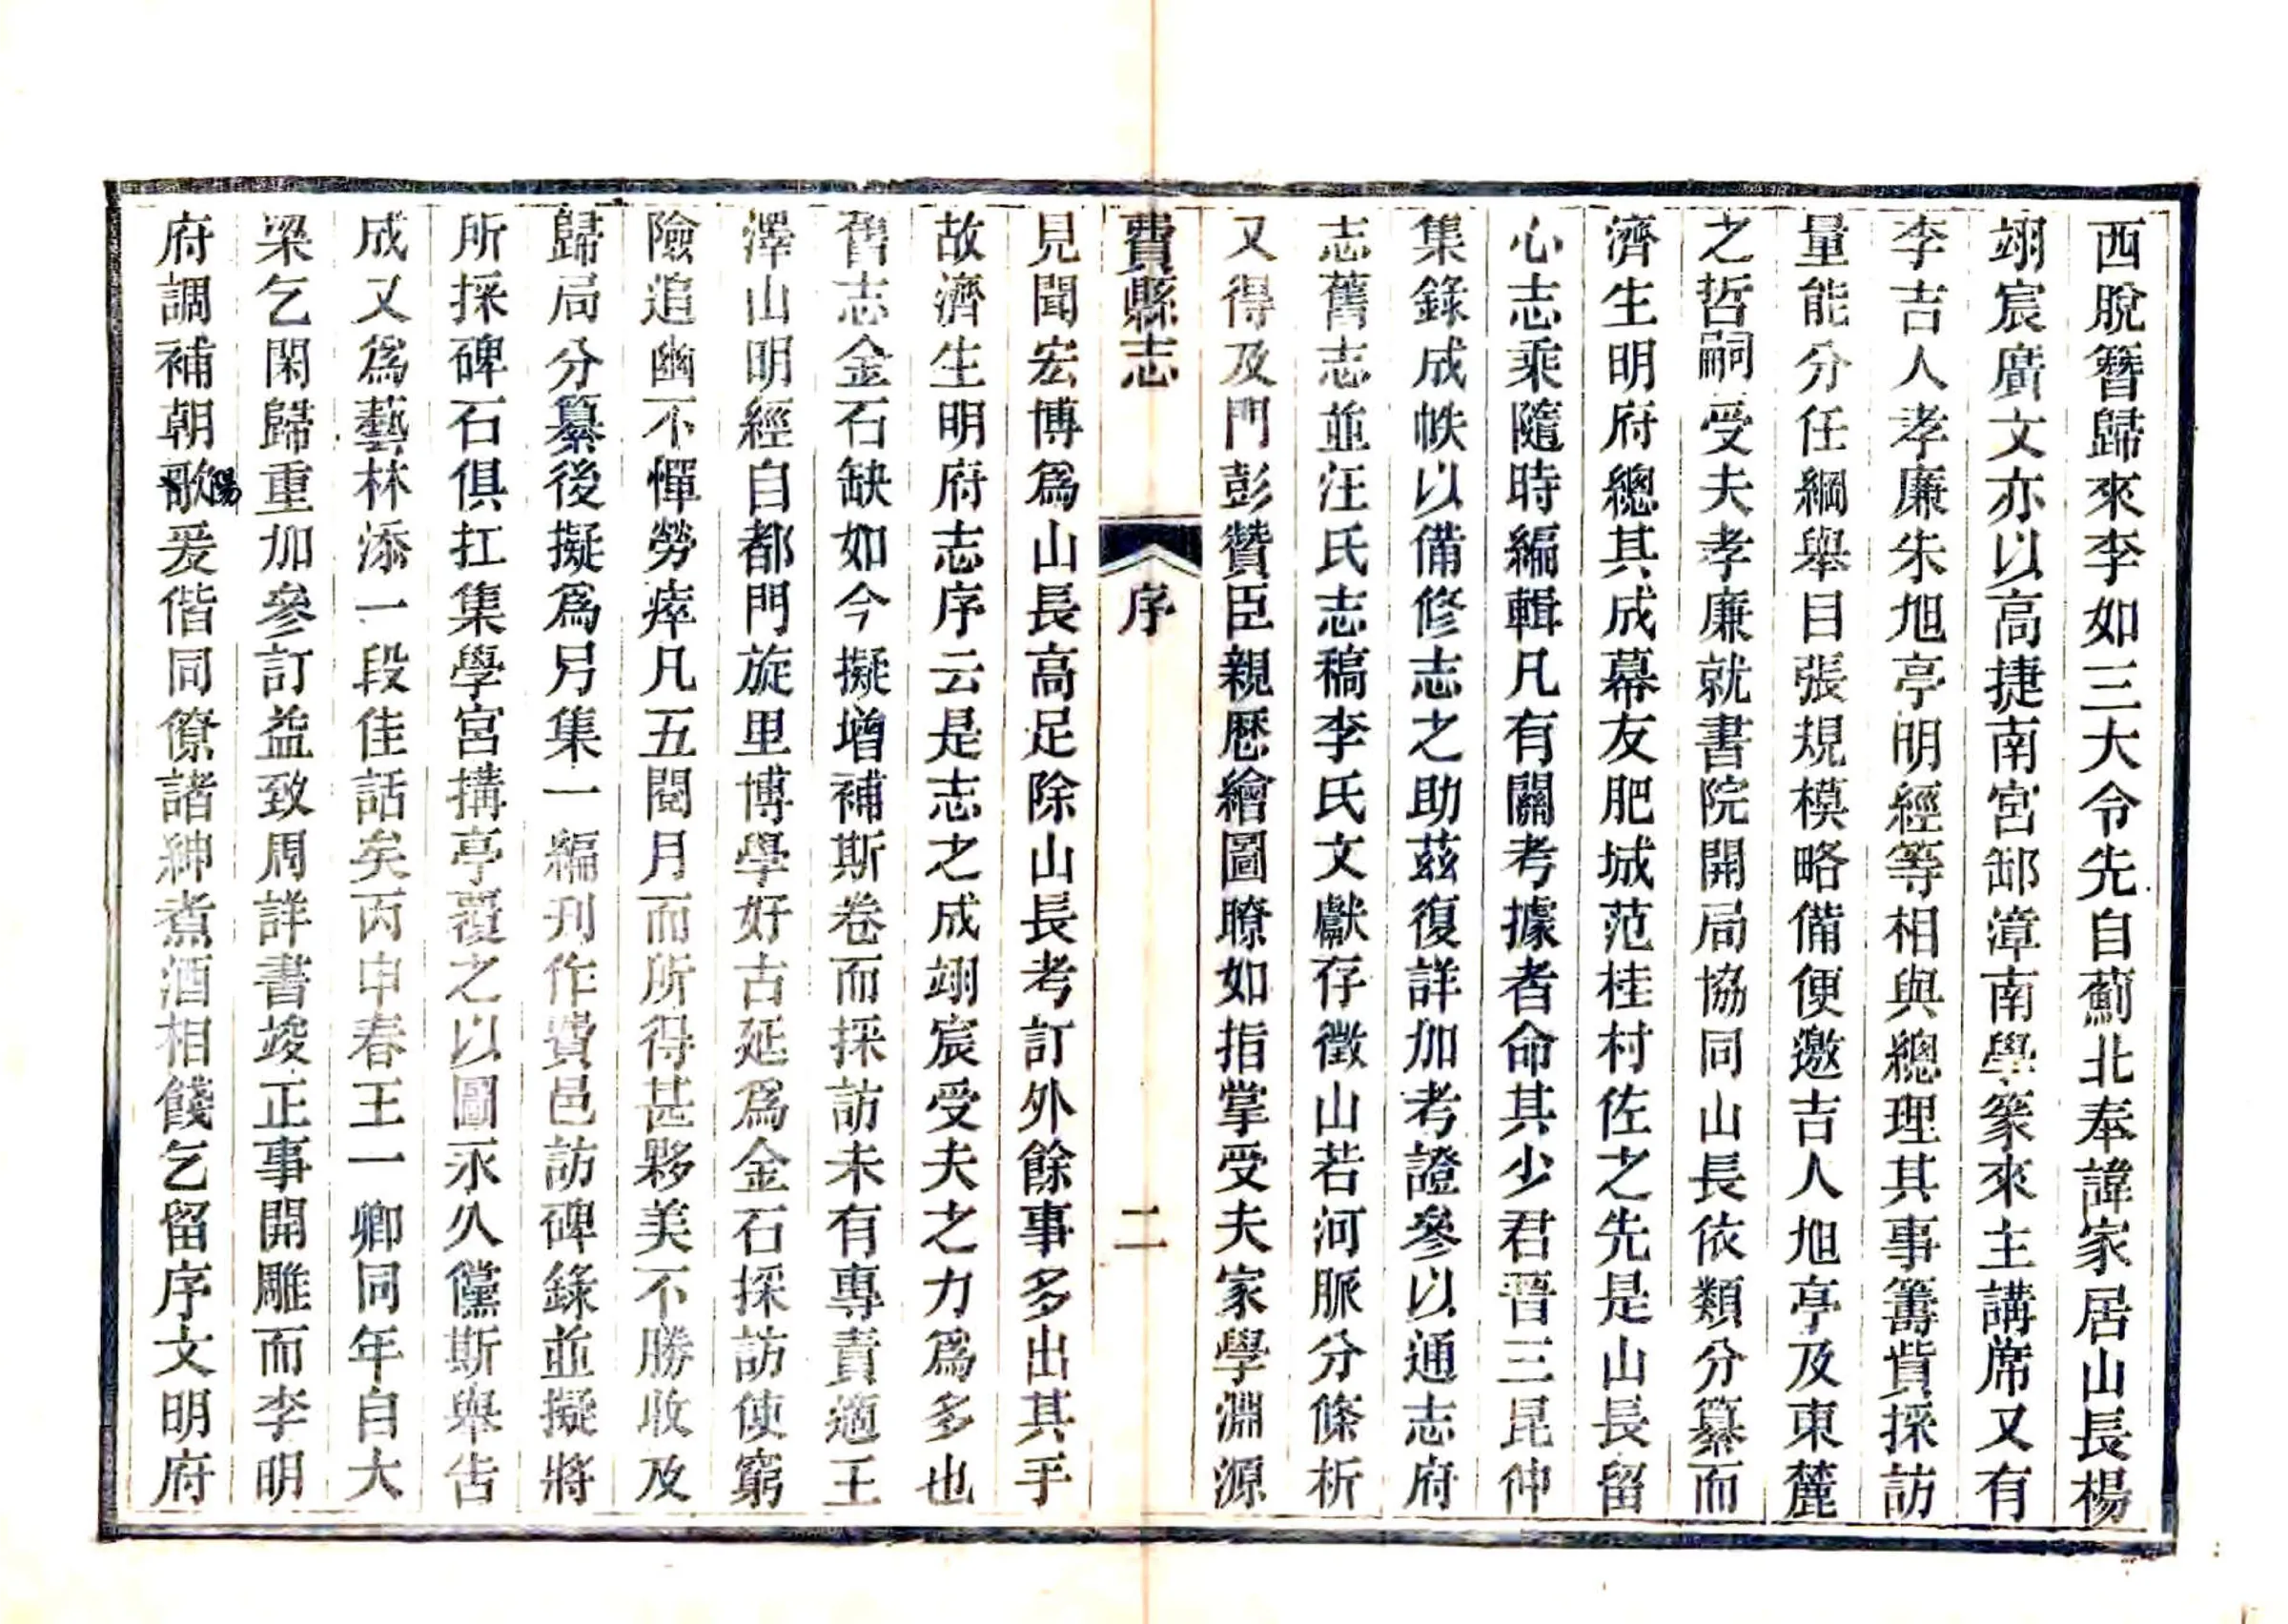 西脫簪歸來李如三大令先自薊北奉諱家居山長楊
翊宸廣文亦以高捷南宮卸漳南學篆來主講席又有
李吉人孝廉朱旭亭明經等相與總理其事籌貲採訪
量能分任綱舉目張規模略備便邀吉人旭亭及東麓
之哲嗣受夫孝廉就書院開局協同山長依類分纂而
濟生明府總其成幕友肥城范桂村佐之先是山長留
心志乘隨時編輯凡有關考據者命其少君晉三昆仲
集錄成帙以備修志之助茲復詳加考證參以通志府
志舊志並汪氏志稿李氏文獻存徵山若河脈分條析
又得及門彭贊臣親歷繪圖瞭如指掌受夫家學淵源
費縣志 序 二
見聞宏博爲山長高足除山長考訂外餘事多出其手
故濟生明府志序云是志之成翊宸受夫之力爲多也
舊志金石缺如今擬增補斯卷而採訪未有專責適王
澤山明經自都門旋里博學好古延爲金石採訪使窮
險追幽不憚勞瘁凡五閱月而所得甚夥美不勝收及
歸局分纂後擬爲另集一編刊作費邑訪碑錄並擬將
所採碑石俱扛集學宮搆亭覆之以圖永久儻斯舉告
成又爲藝林添一段佳話矣丙申春王一卿同年自大
梁乞閑歸重加參訂益致周詳書竣正事開雕而李明
府調補朝歌陽爰偕同僚諸紳煮酒相餞乞留序文明府